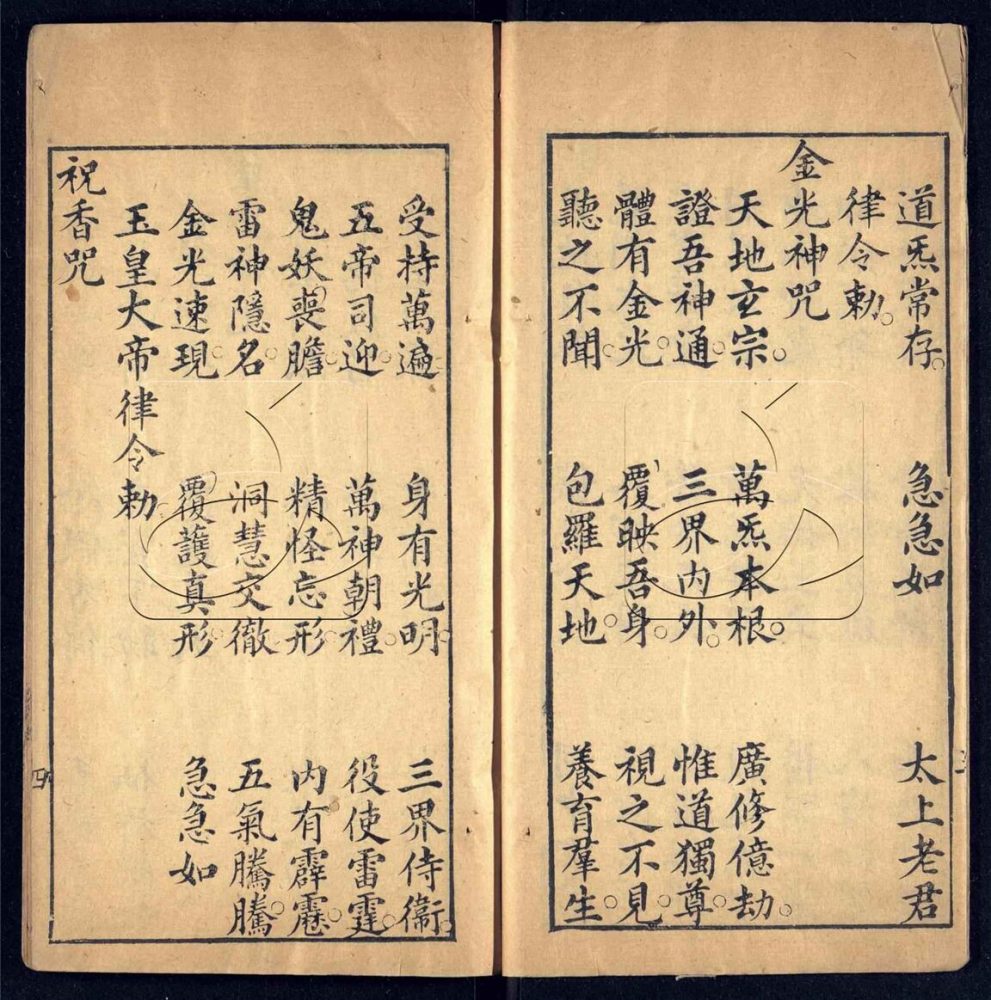 道炁常存。 急急如 太上老君
律令勅。
金光神咒
天地玄宗。 萬炁本根。 廣修億劫。
證吾神通。 三界内外。 惟道獨尊。
體有金光。 覆映吾身。 視之不見。
聽之不聞。 包羅天地。 養育羣生。
受持萬遍。 身有光明。 三界侍衞。
五帝司迎。 萬神朝禮。 役使雷霆。
鬼妖喪膽。 精怪忘形。 内有霹靂。
雷神隱名。 洞慧交徹 五氣騰騰
金光速現 覆護真形。 急急如
玉皇大帝律令勅。
祝香咒
四